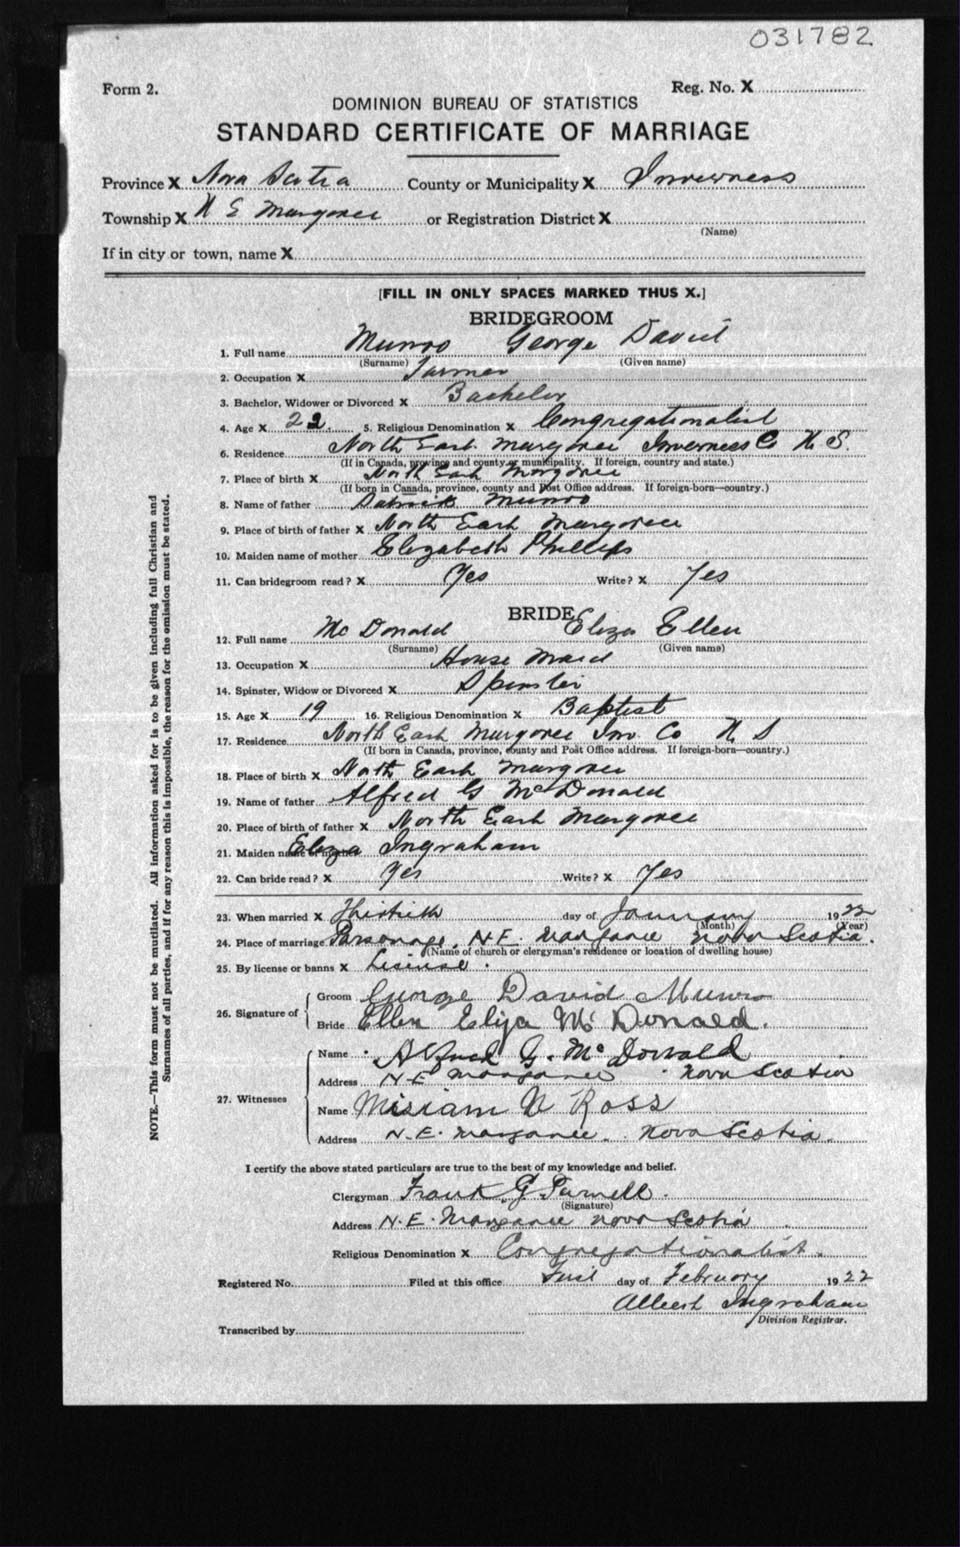 031782
Form 2.
Reg. No. X
DOMINION BUREAU OF STATISTICS
STANDARD CERTIFICATE OF MARRIAGE
Province X Nova Scotia County or Municipality X Inverness
Township X N E Margaree or Registration District X
(Name)
If in city or town, name X
[FILL IN ONLY SPACES MARKED THUS X.]
BRIDEGROOM
1. Full name Munro George David
(Surname) (Given name)
2. Occupation X Farmer
3. Bachelor, Widower or Divorced X Bachelor
4. Age X 22 5. Religious Denomination X Congregationalist
6. Residence North East Margaree Inverness Co N. S.
(If in Canada, province and county or municipality. If foreign, country and state.)
7. Place of birth X North East Margaree
(If born in Canada, province, county and Post Office address. If foreign-born—country.)
8. Name of father Patrick Munro
9. Place of birth of father X North East Margaree
10. Maiden name of mother Elizabeth Phillips
11. Can bridegroom read? X Yes Write? X Yes
BRIDE
12. Full name McDonald Eliza Ellen
(Surname) (Given name)
13. Occupation X House Maid
14. Spinster, Widow or Divorced X Spinster
15. Age X 19 16. Religious Denomination X Baptist
17. Residence North East Margaree Inv. Co N S
(If born in Canada, province, county and Post Office address. If foreign-born—country.)
18. Place of birth X North East Margaree
19. Name of father Alfred G McDonald
20. Place of birth of father X North East Margaree
21. Maiden name of mother Eliza Ingraham
22. Can bride read? X Yes Write? X Yes
23. When married X Thirtieth day of January 1922
(Month) (Year)
24. Place of marriage Parsonage, N.E. Margaree Nova Scotia.
(Name of church or clergyman's residence or location of dwelling house)
25. By license or banns X License.
26. Signature of Groom George David Munro
Bride Ellen Eliza McDonald.
27. Witnesses Name Alfred G. McDonald
Address N.E Margaree Nova Scotia
Name Miriam Ross
Address N.E. Margaree. Nova Scotia.
I certify the above stated particulars are true to the best of my knowledge and belief.
Clergyman Frank G Purnell.
(Signature)
Address N.E. Margaree Nova Scotia
Religious Denomination X Congregationalist.
Registered No. Filed at this office First day of February 1922
Albert Ingraham
Division Registrar.
Transcribed by
NOTE.—This form must not be mutilated. All information asked for is to be given including full Christian and
Surnames of all parties, and if for any reason this is impossible, the reason for the omission must be stated.